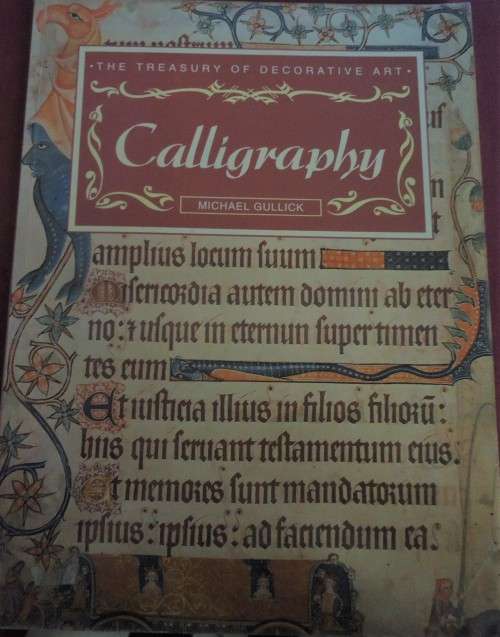 tum nostrum
· THE TREASURY OF DECORATIVE ART ·
Calligraphy
MICHAEL GULLICK
amplius locum suum
Misericordia autem domini ab eter
no: ⁊ usque in eternun super timen
tes eum
Et iusticia illius in filios filiorū:
hiis qui seruant testamentum eius.
Et memores sunt mandatorum
ipsius: ipsius: ad faciendum ea.